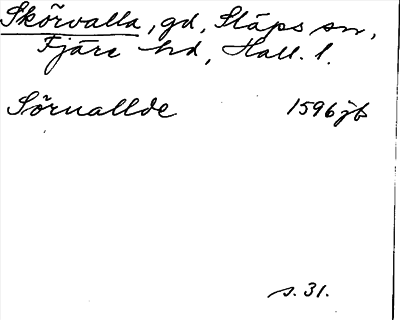 Skörvalla, gd, Släps sn,
Fjäre hd, Hall. l.
Sörvallde 1596 jb
s. 31.